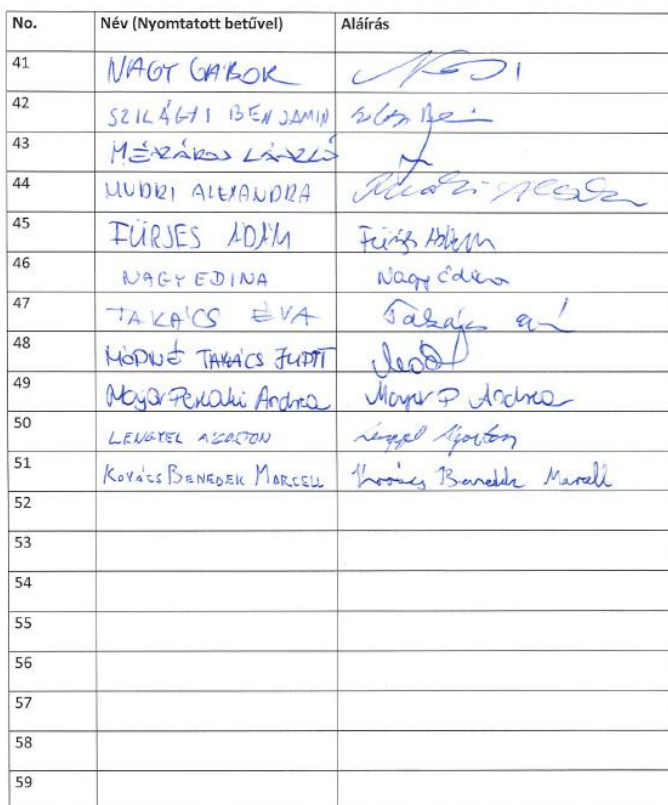 No. Név (Nyomtatott betűvel) Aláírás
41 NAGY GÁBOR
42 SZILÁGYI BENJAMIN
43 MÉSZÁROS LÁSZLÓ
44 MUDRI ALEXANDRA
45 FÜRJES ÁDÁM Fürjes Ádám
46 NAGY EDINA Nagy Edina
47 TAKÁCS ÉVA Takács Éva
48 MÓDNÉ TAKÁCS JUDIT
49 Andrea Andrea
50 LENGYEL ÁGOSTON Lengyel Ágoston
51 KOVÁCS BENEDEK MARCELL Kovács Benedek Marcell
52
53
54
55
56
57
58
59